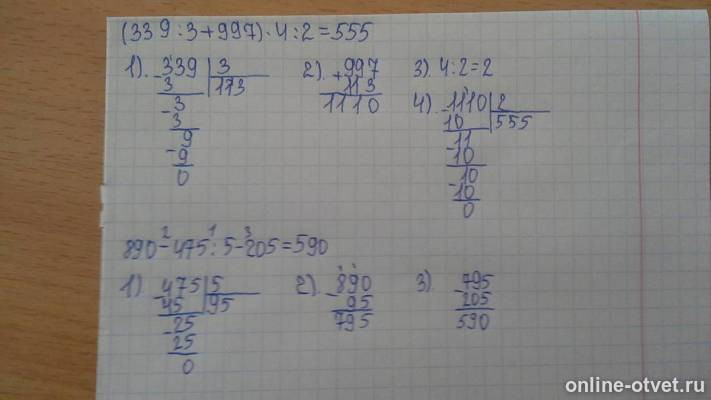 (339:3+997)·4:2=555
1). 339 | 3
3 | 113
3
- 3
9
- 9
0
2). 997
+ 113
1110
3). 4:2=2
4). 1110 | 2
10 | 555
- 11
10
- 10
10
0
2 1 3
890-475:5-205=590
1) - 475 | 5
45 | 95
- 25
25
0
2). - 890
95
795
3) - 795
205
590
online-otvet.ru